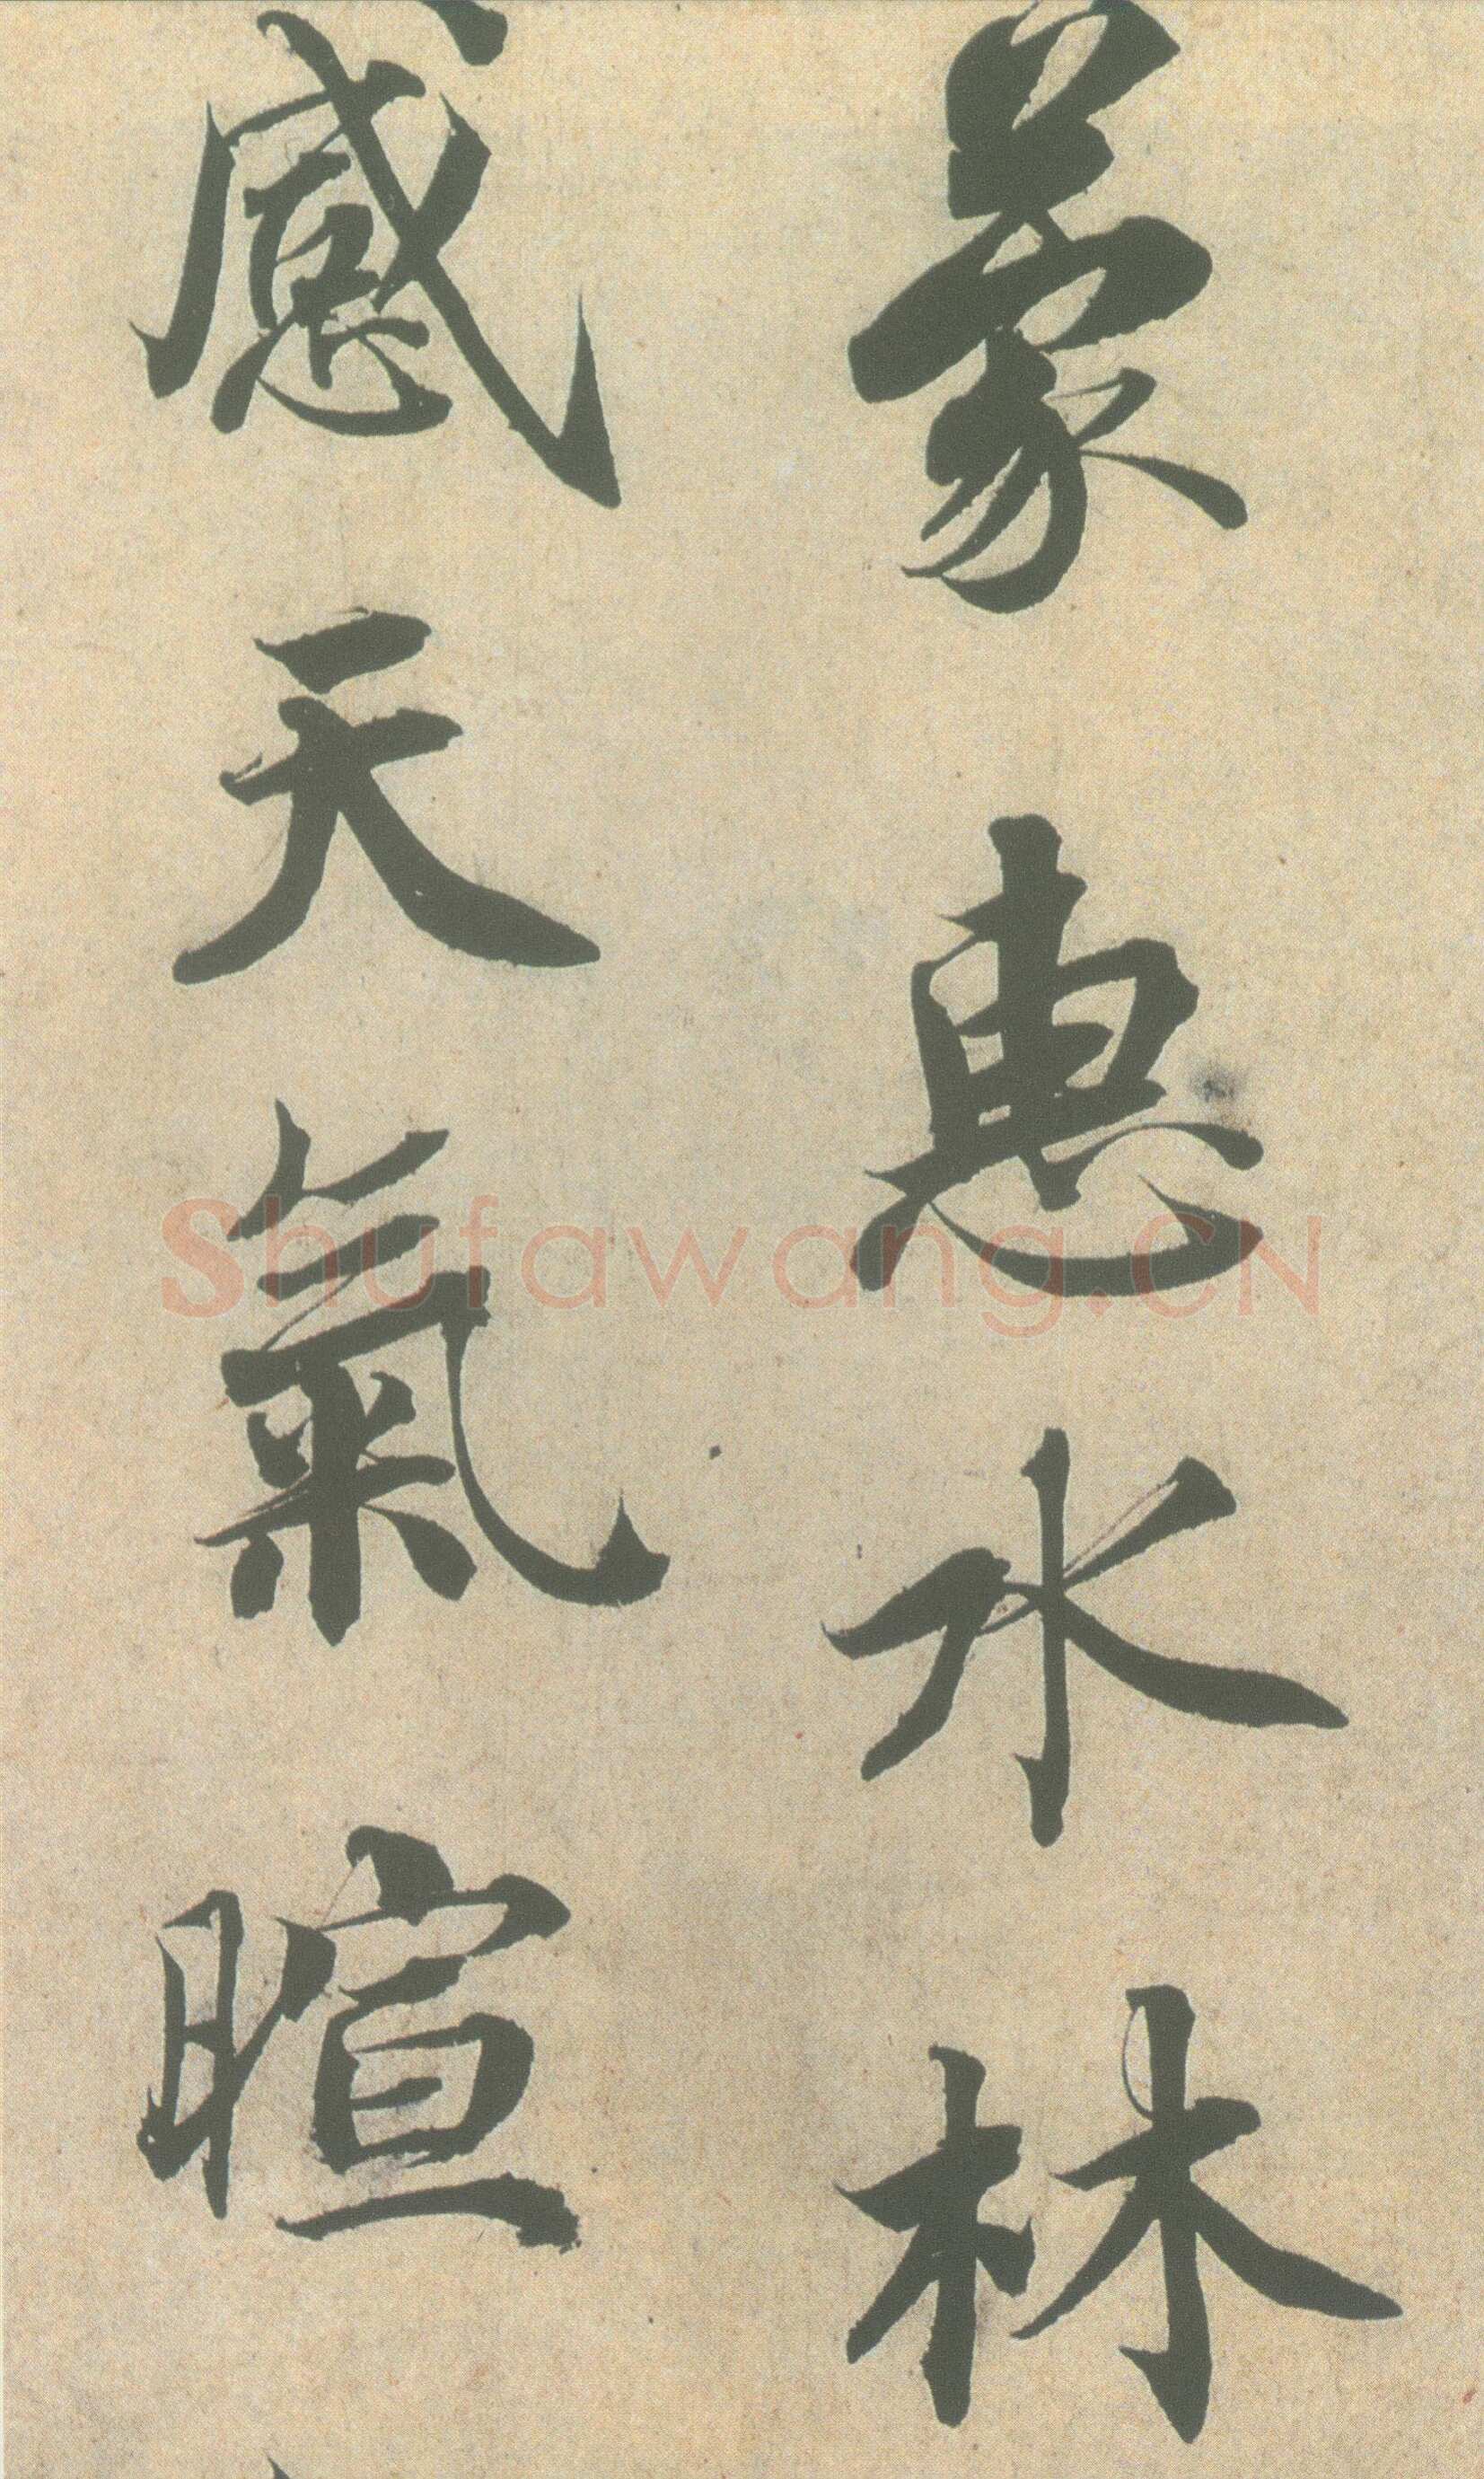 蒙惠水林
感天氣暄
Shufawang.CN